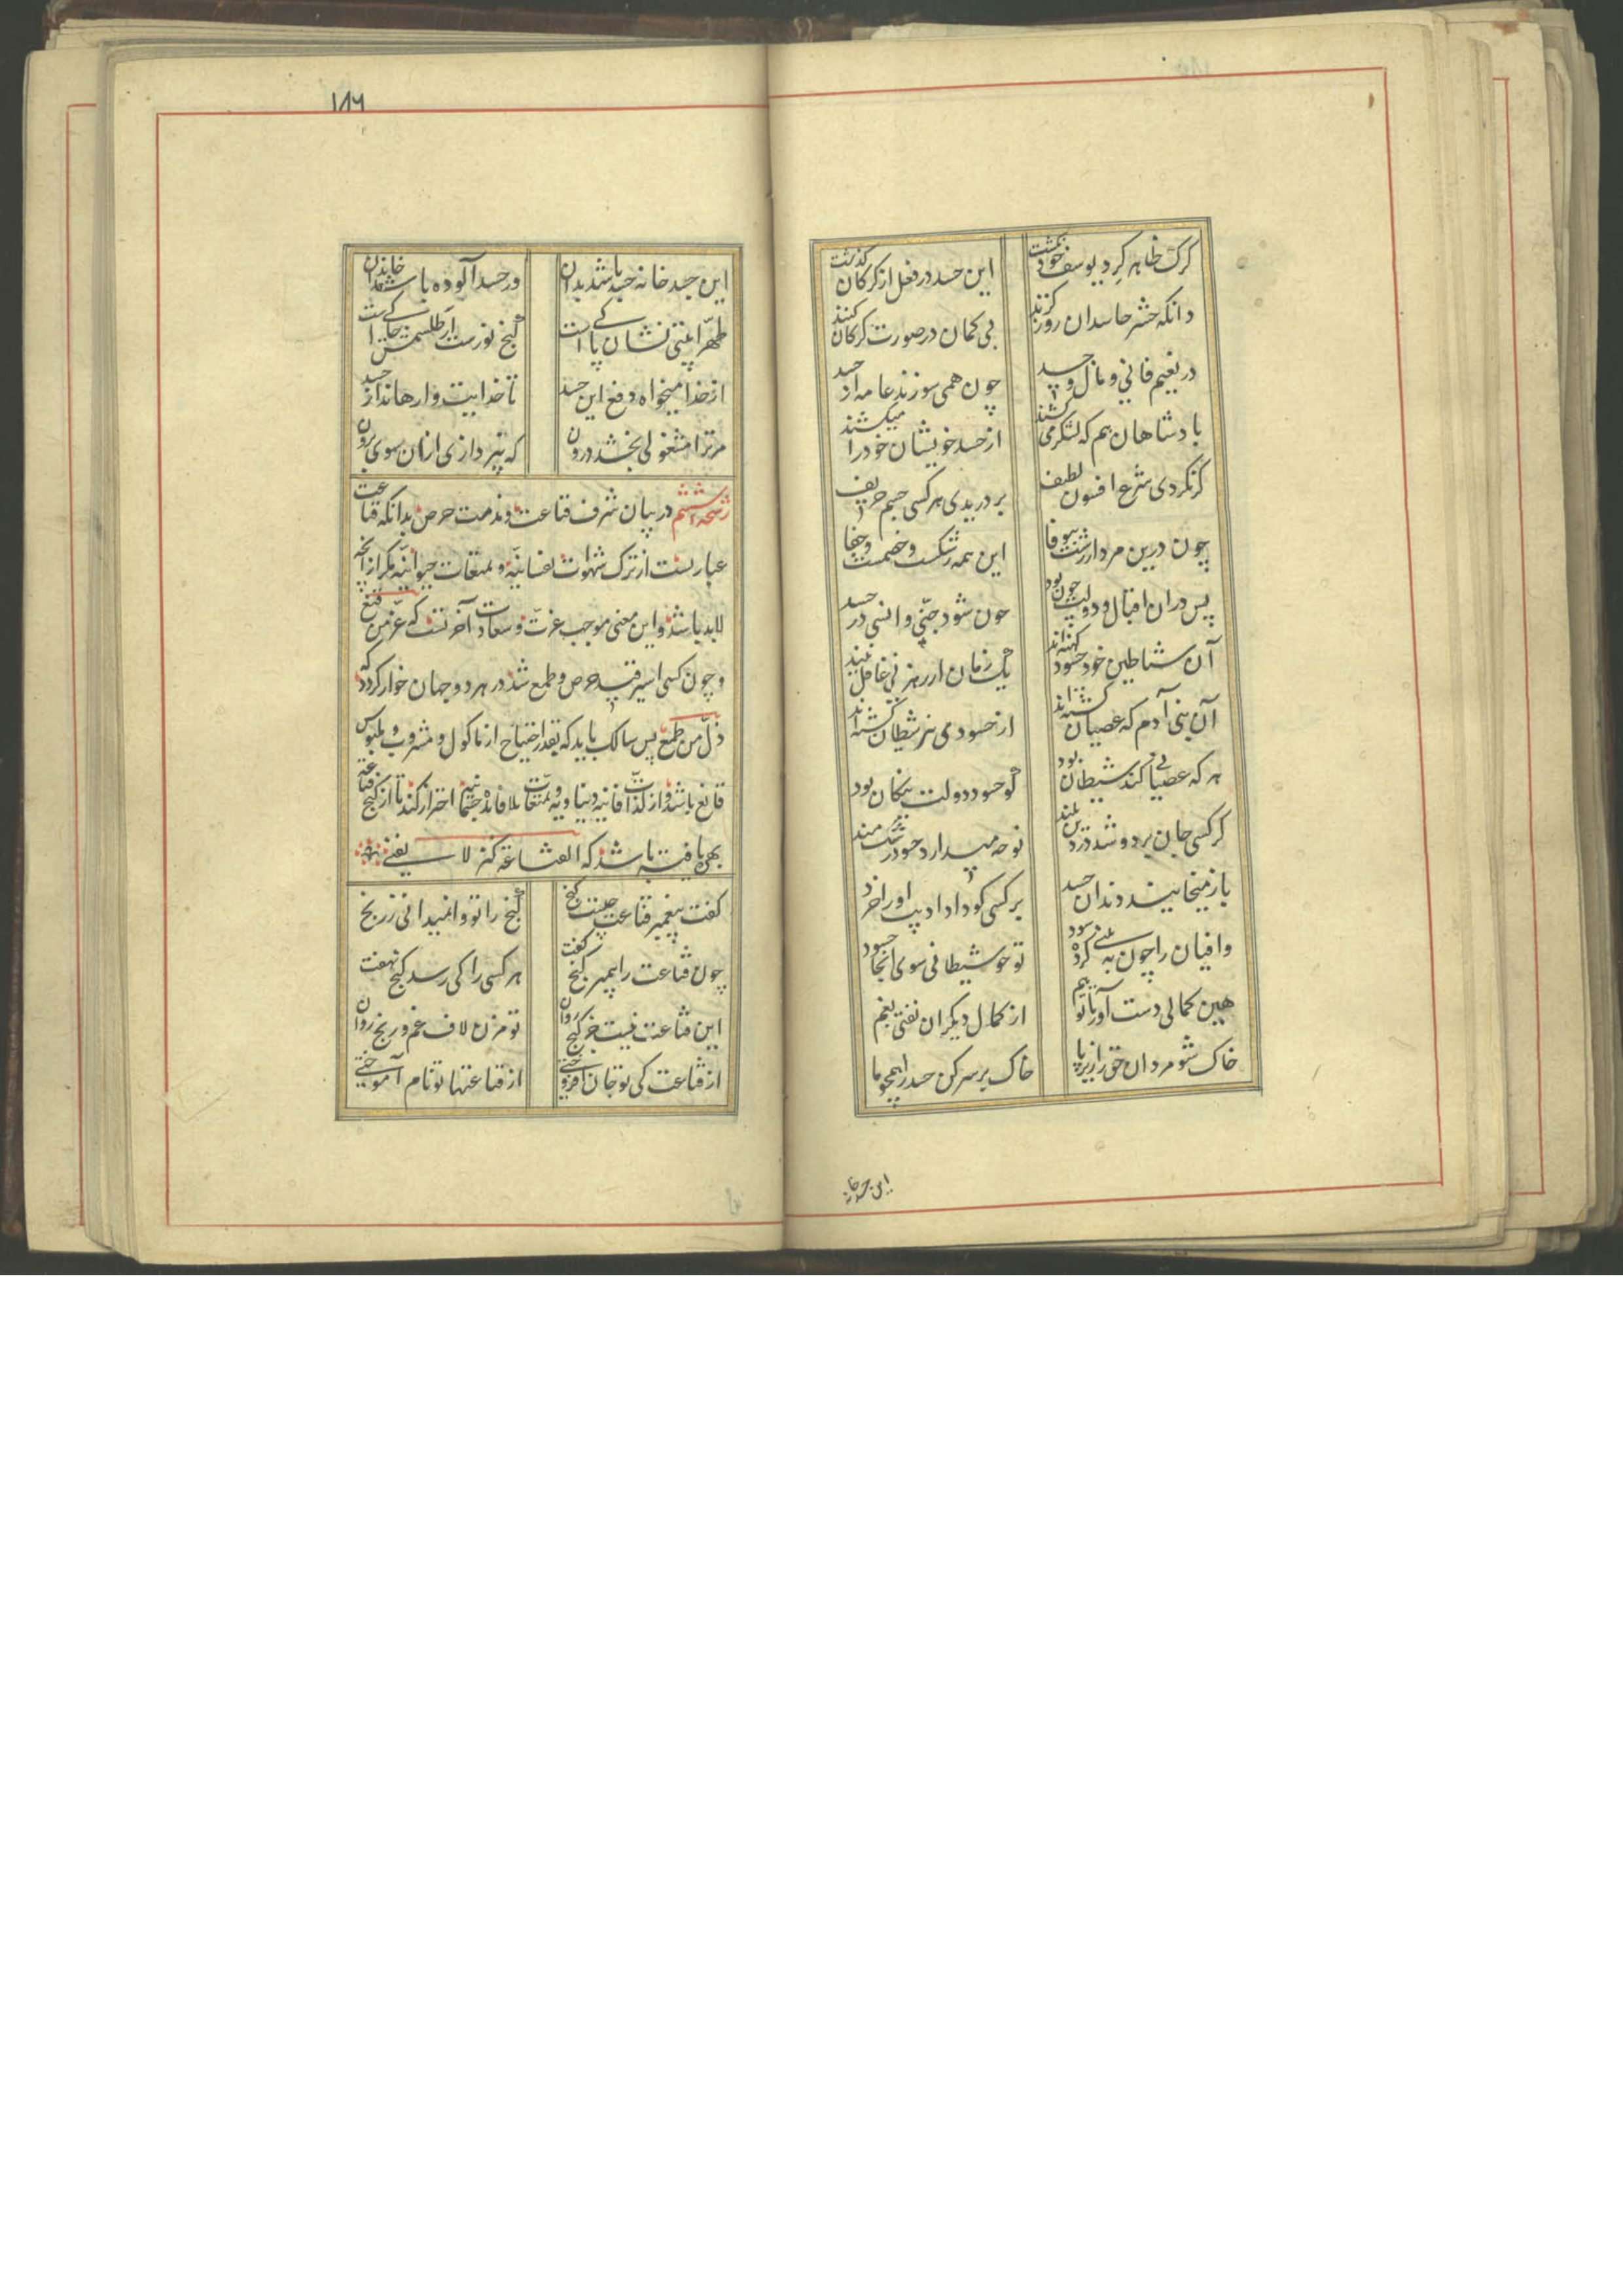 کرک ظاهر کرد یوسف خود نکشت این حسد در فعل از کرکان کذشت
دانکه حشر حاسدان روز کزند بی کمان در صورت کرکان کنند
در نعیم فانی و مال و جسد چون همی سوزند عامه از حسد
بادشاهان هم که لشکر می کشند از حسد خویشان خود را میکشند
کر نکردی شرع افسون لطیف بر دریدی هر کسی جسم حریف
چون درین مردار زشت بیوفا این همه رشکست و خصمست و جفا
پس دران اقبال و دولت چون بود چون شود جنّی و انسی در حسد
آن شیاطین خود حسود کهنه اند یک زمان از رهزنی غافل نیند
آن بنی آدم که عصیان کشته اند از حسودی نیز شیطان کشته اند
هر که عصیان کند شیطان بود کو حسود دولت نیکان بود
کر کسی جان برد و شد در دین بلند نوحه میدارد حسود رشک مند
باز میخایند دندان حسد بر کسی کو داد ادیب او را خرد
وافیان را چون به بینی کرده سود تو چو شیطانی شوی آنجا حسود
هین کمالی دست آور تا تو هم از کمال دیکران نفتی بغم
خاک شو مردان حق را زیر پا خاک بر سر کن حسد را همچو ما
این جسد خانه
۱۸۶
این جسد خانه حسد باشد بدان ور حسد آلوده باشد خاندان
طهّرا بیتی نشان پاکی است کنج نورست ار طلسمش خاکی است
از خدا میخواه دفع این حسد تا خدایت وارهاند از حسد
مر ترا مشغولی بخشد درون که نپردازی ازان سوی برون
رشحه ششم در بیان شرف قناعت و مذمت حرص بدانکه قناعت
عبارتست از ترک شهوات نفسانیّه و تمتعات حیوانیّه مکر از آنچه
لابد باشد و این معنی موجب عزّت و سعادت آخرتست که عزّ من قنع
و چون کسی اسیر قید حرص و طمع شد در هر دو جهان خوار کردد که
ذلّ من طمع پس سالک باید که بقدر احتیاج از ماکول و مشروب و ملبوس
قانع باشد و از لذّات فانیه دنیاویه و تمتعات بلا فائده جسمانیه احتراز کند تا از کنج قناعت
بهره یافته باشد که القناعة کنز لا یفنی
کفت پیغمبر قناعت چیست کنج کنج را تو وا نمیدانی ز رنج
چون قناعت را پیمبر کنج کفت هر کسی را کی رسد کنج نهفت
این قناعت نیست جز کنج روان تو مزن لاف غم و رنج روان
از قناعت کی تو جان افروختی از قناعتها تو نام آموختی